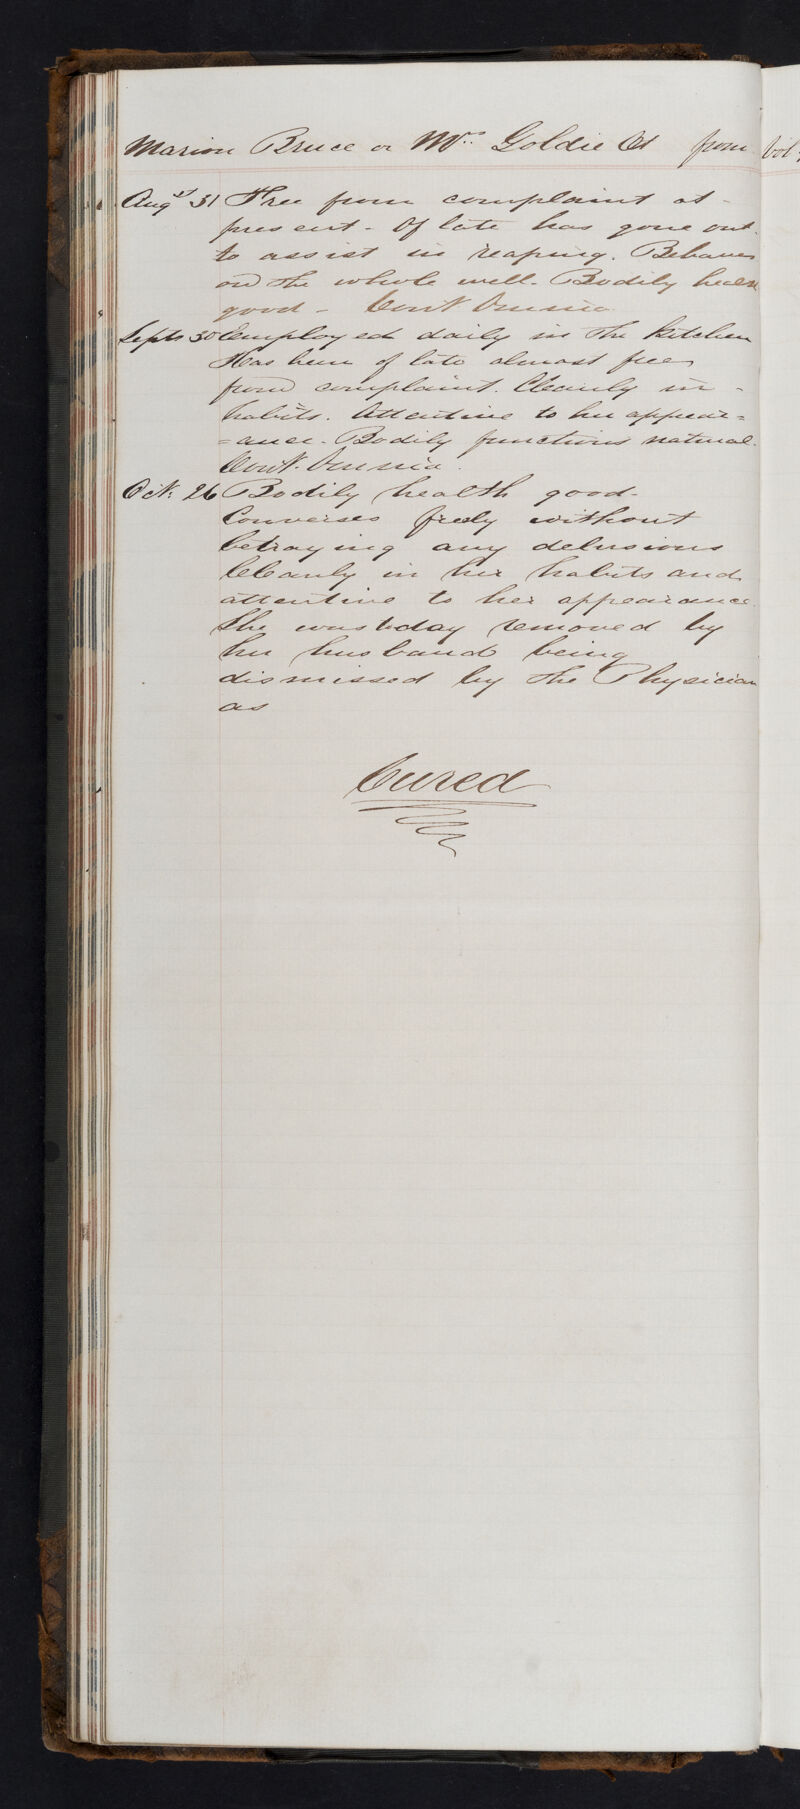 Marion Bruce or Mrs. Goldie Ct from Vol
Augst 31 Free from complaint at
present - Of late has gone out
to assist in reaping. Behaves
on the whole well. Bodily health
good - Cont Omnia
Septr 30 Employed daily in the kitchen
Has been of late almost free
from complaint. Cleanly in
habits. Attentive to her appear=
=ance. Bodily functions natural.
Cont. Omnia.
Oct. 26 Bodily health good.
Converses freely without
betraying any delusions
Cleanly in her habits and
attentive to her appearance.
She was today removed by
her husband being
dismissed by the Physician
as
Cured